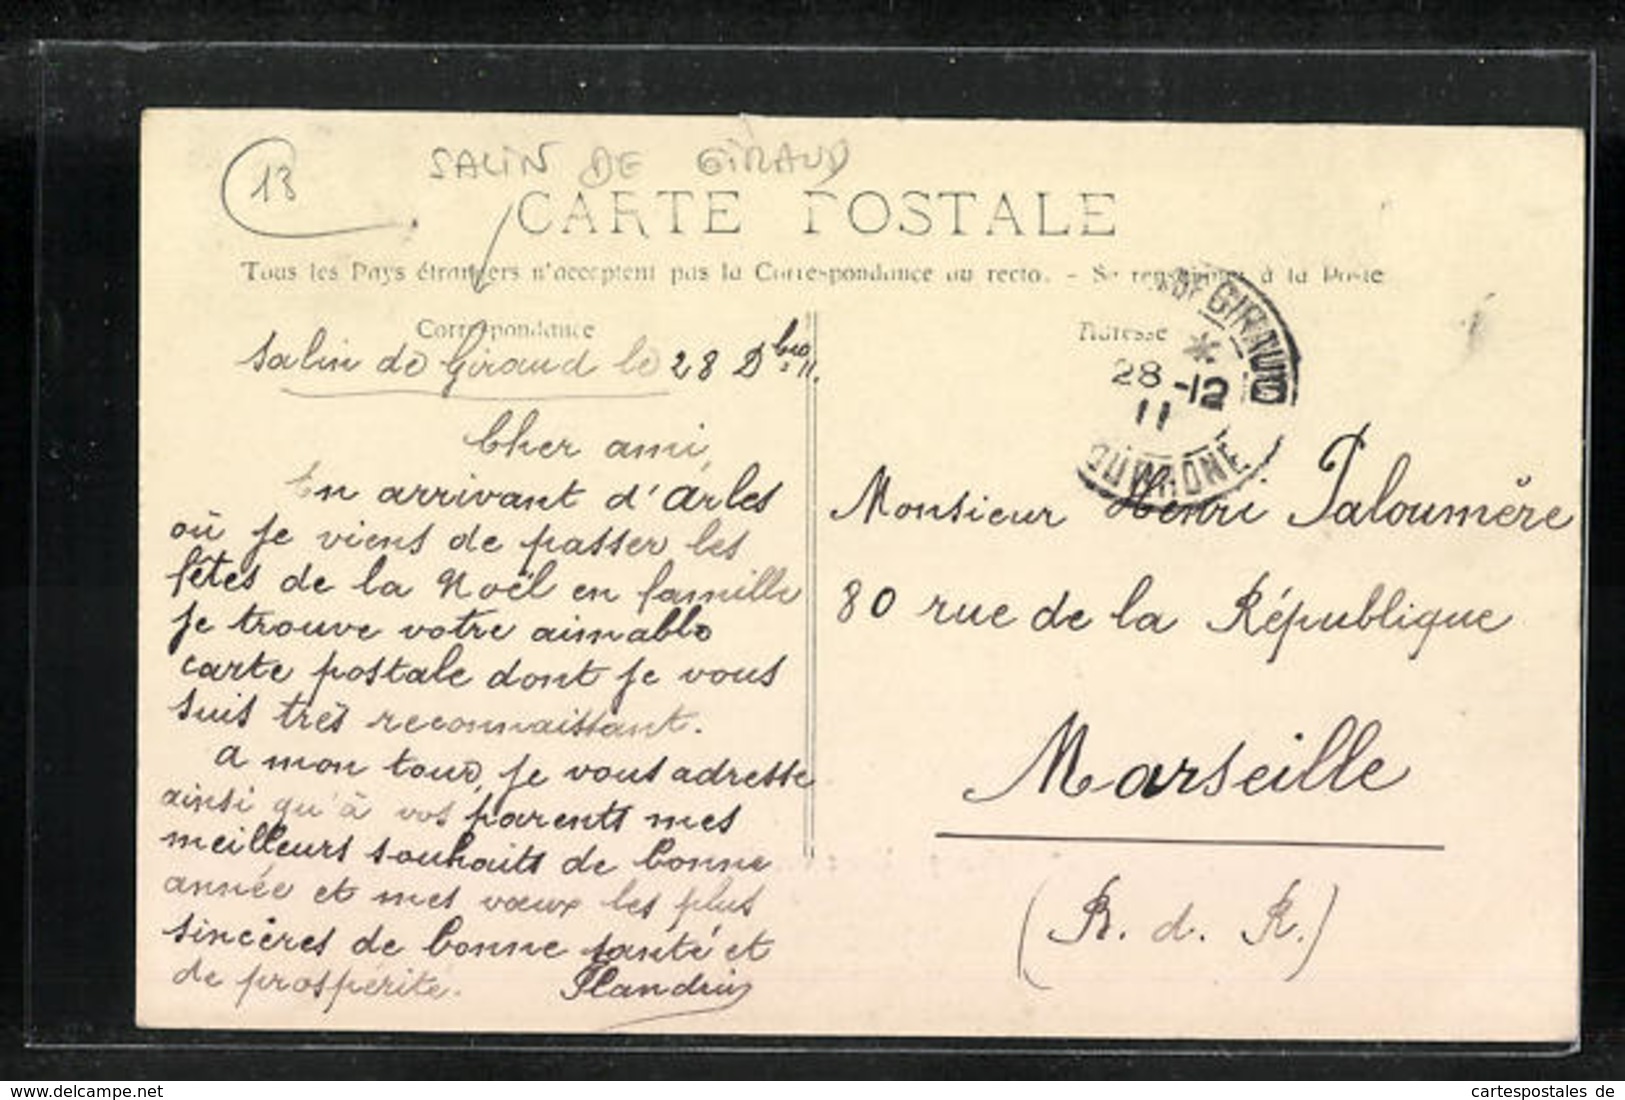 13
SALIN DE GIRAUD
CARTE POSTALE
Tous les Pays étrangers n'acceptent pas la Correspondance au recto. - Se renseigner à la Poste
Correspondance
Salin de Giraud le 28 Dbre 11.
Cher ami,
En arrivant d'Arles
où je viens de passer les
fêtes de la Noël en famille
je trouve votre aimable
carte postale dont je vous
suis très reconnaissant.
A mon tour, je vous adresse
ainsi qu'à vos parents mes
meilleurs souhaits de bonne
année et mes vœux les plus
sincères de bonne santé et
de prospérité. Flandrin
Adresse
DE GIRAUD
28 -12
11
DU RHONE
Monsieur Henri Paloumère
80 rue de la République
Marseille
(B. d. R.)
www.delcampe.net
cartespostales de